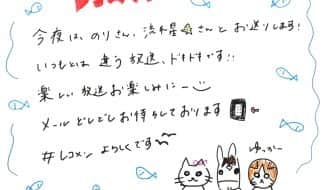 今夜は、のりさん、流れ星☆さんとお送りします!
いつもとは違う放送、ドキドキです!!
楽しい放送お楽しみにー
メールどしどしお待ちしております
#レコメン よろしくです
ゆっかー